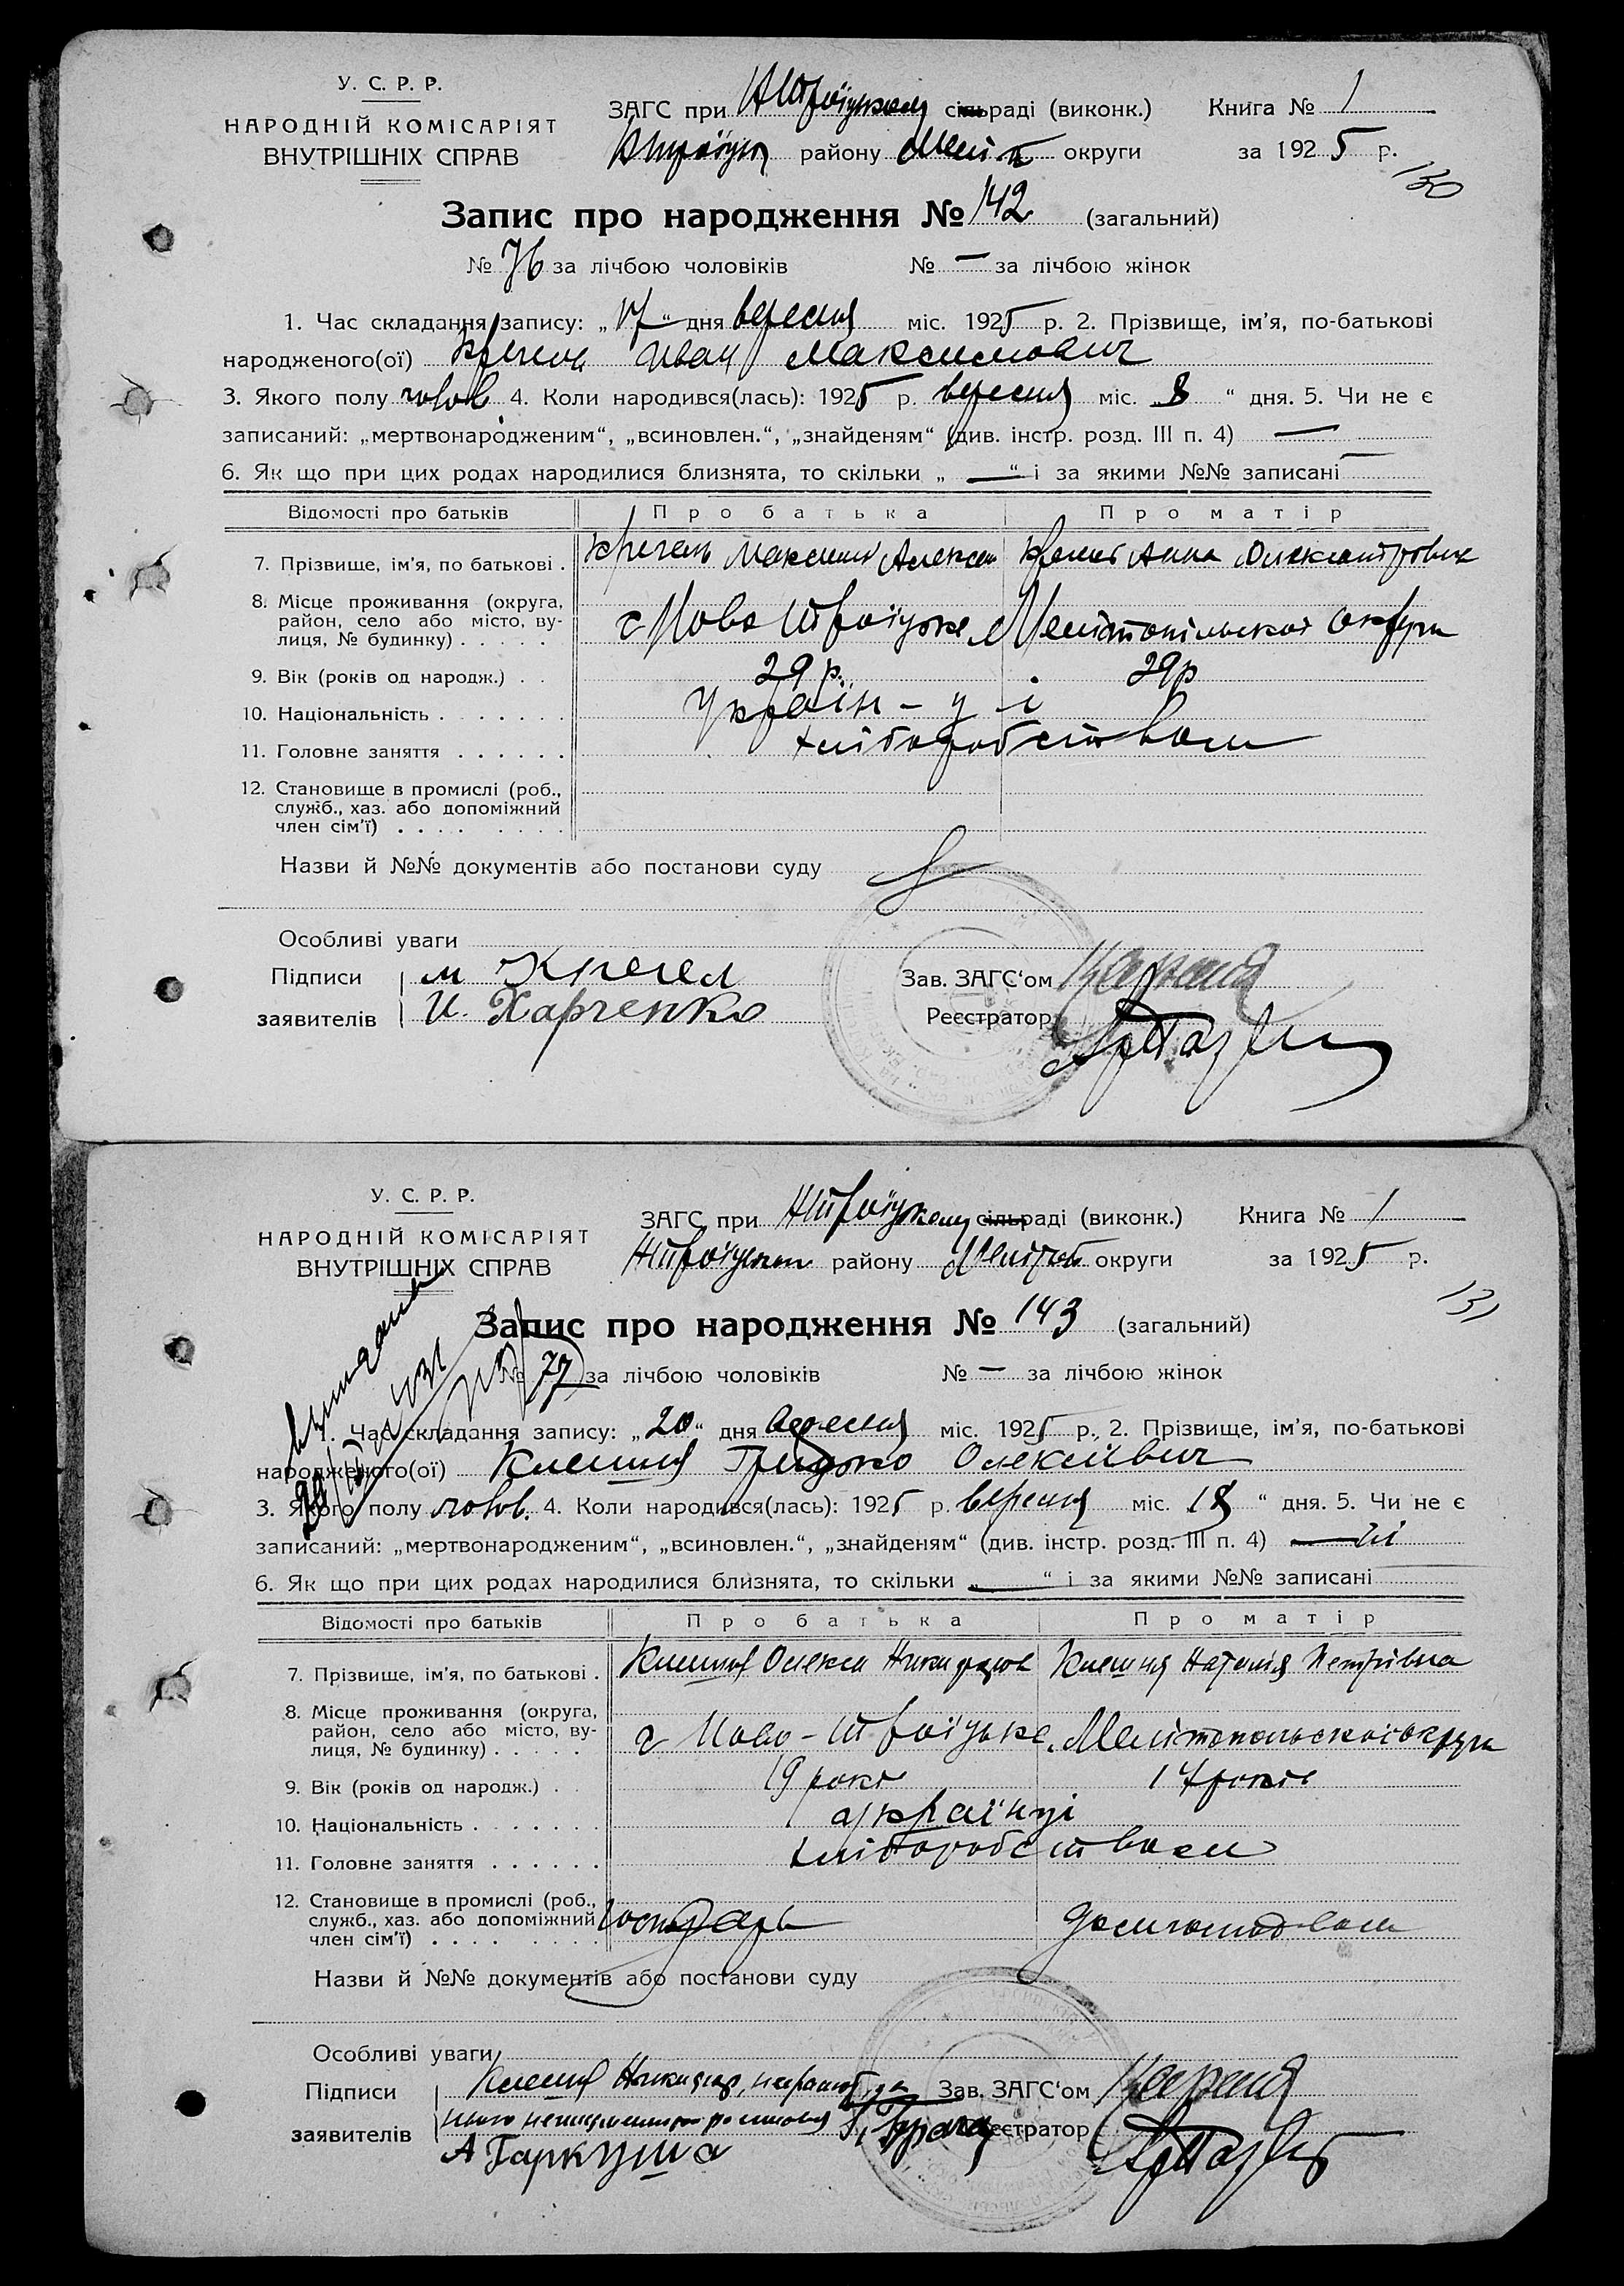 У. С. Р. Р.
НАРОДНІЙ КОМІСАРІЯТ
ВНУТРІШНІХ СПРАВ
ЗАГС при НТроїцькому сільраді (виконк.) Книга № 1
району Меліт. округи за 1925 р.
130
Запис про народження № 142 (загальний)
№ 76 за лічбою чоловіків № — за лічбою жінок
1. Час складання запису: „17“ дня вересня міс. 1925 р. 2. Прізвище, ім’я, по-батькові
народженого(ої) Иван Максимович
3. Якого полу чолов. 4. Коли народився(лась): 1925 р. вересня міс. 8 “ дня. 5. Чи не є
записаний: „мертвонародженим“, „всиновлен.“, „знайденям“ (див. інстр. розд. III п. 4) —
6. Як що при цих родах народилися близнята, то скільки „ — “ і за якими №№ записані —
Відомості про батьків Про батька Про матір
7. Прізвище, ім’я, по батькові . Максим Алексеи Анна
8. Місце проживання (округа,
район, село або місто, ву-
лиця, № будинку) . . . . . с Ново Троїцьке Мелітопільської округи
9. Вік (років од народж.) . . 29 р. 29 р
10. Національність . . . . . . . Україн - ц - і
11. Головне заняття . . . . . . хліборобством
12. Становище в промислі (роб.,
служб., хаз. або допоміжний
член сім’ї) . . . . . . . .
Назви й №№ документів або постанови суду
Особливі уваги
Підписи м Зав. ЗАГС‘ом
заявителів И. Харченко Реєстратор
У. С. Р. Р.
НАРОДНІЙ КОМІСАРІЯТ
ВНУТРІШНІХ СПРАВ
ЗАГС при НТроїцькому сільраді (виконк.) Книга № 1
НТроїцьком району Меліт округи за 1925 р.
131
Запис про народження № 143 (загальний)
№ 77 за лічбою чоловіків № — за лічбою жінок
1. Час складання запису: „20“ дня вересня міс. 1925 р. 2. Прізвище, ім’я, по-батькові
народженого(ої) Клешня Грицько Олексіївич
3. Якого полу чолов. 4. Коли народився(лась): 1925 р. вересня міс. 18 “ дня. 5. Чи не є
записаний: „мертвонародженим“, „всиновлен.“, „знайденям“ (див. інстр. розд. III п. 4) — ні
6. Як що при цих родах народилися близнята, то скільки „ — “ і за якими №№ записані
Відомості про батьків Про батька Про матір
7. Прізвище, ім’я, по батькові . Клешня Олекса Клешня Наталія Петрівна
8. Місце проживання (округа,
район, село або місто, ву-
лиця, № будинку) . . . . . с Ново - Троїцьке, Мелітопольської округи
9. Вік (років од народж.) . . 19 років 17 років
10. Національність . . . . . . . українці
11. Головне заняття . . . . . . хліборобством
12. Становище в промислі (роб.,
служб., хаз. або допоміжний
член сім’ї) . . . . . . . . Господарь
Назви й №№ документів або постанови суду
Особливі уваги
Підписи Клешня Зав. ЗАГС‘ом
заявителів Реєстратор
А Гаркуша